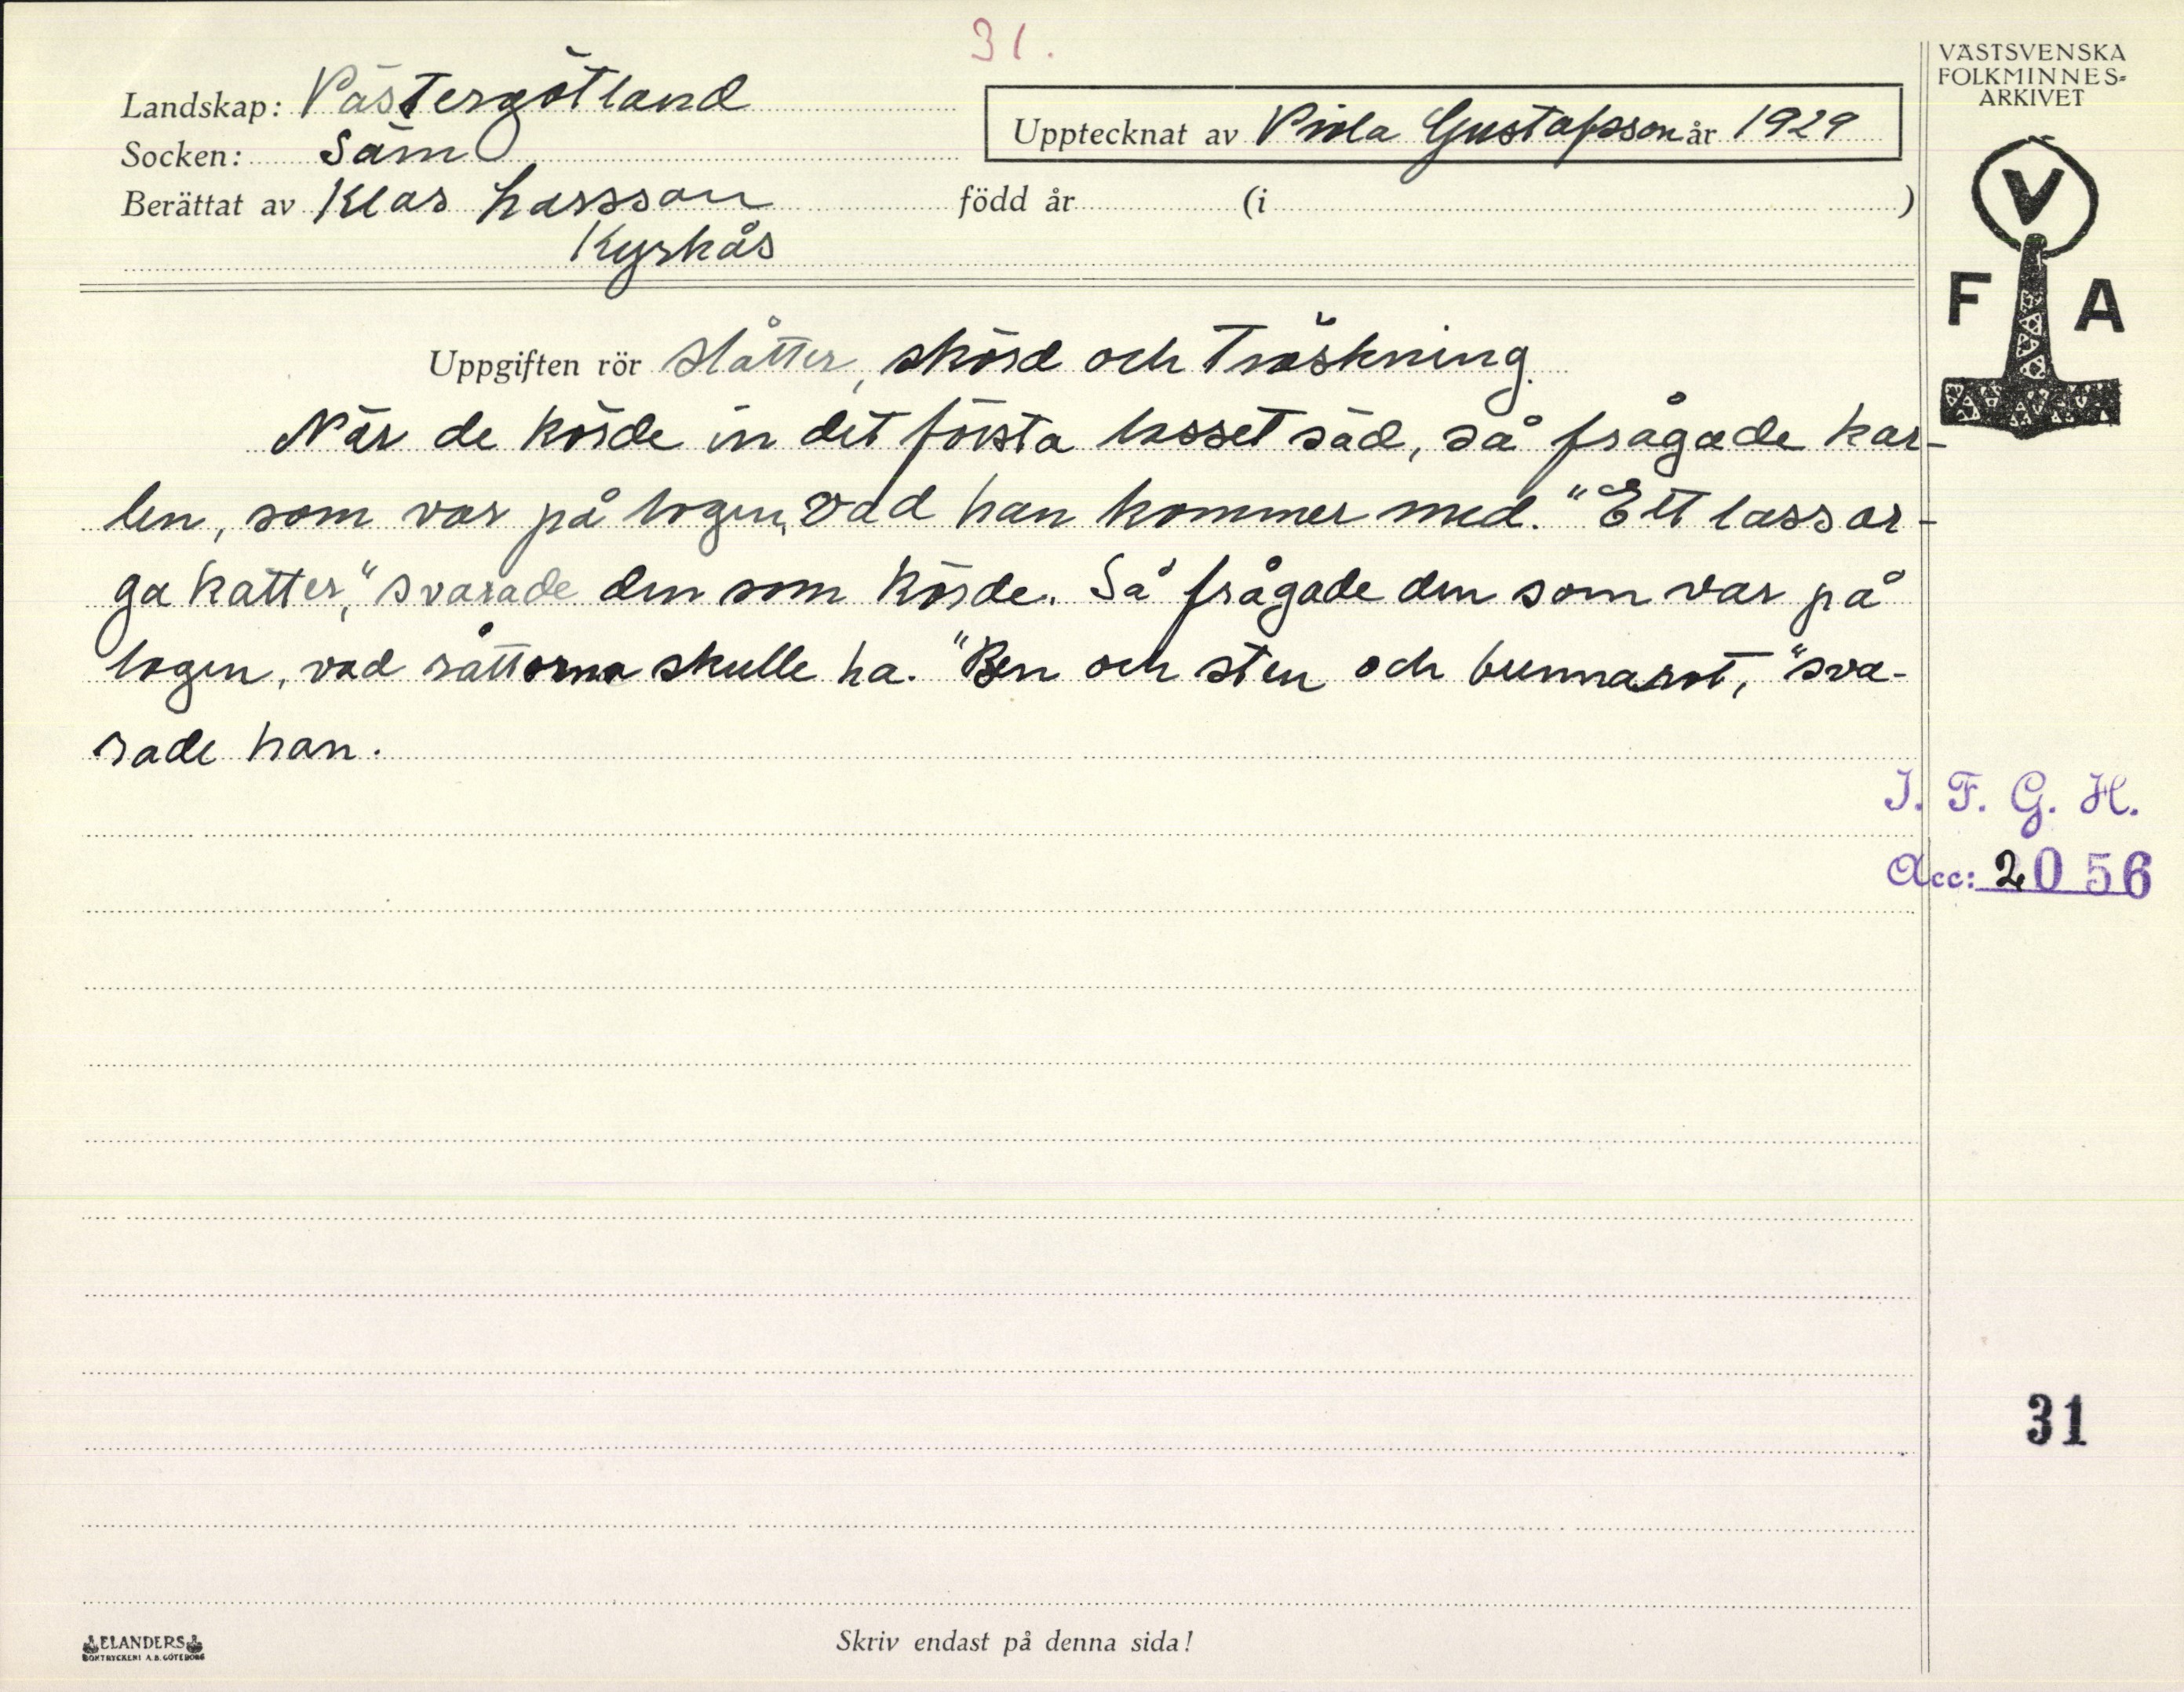 31.
VÄSTSVENSKA
FOLKMINNES-
ARKIVET
Landskap: Västergötland
Upptecknat av Viola Gustafsson år 1929
Socken: Säm
Berättat av Klas Larsson född år (i )
Kyrkås
V
F A
Uppgiften rör Slåtter, skörd och Tröskning.
När de körde in det första lasset säd, så frågade kar-
len, som var på logen, vad han kommer med. "Ett lass ar-
ga katter," svarade den som körde. Så frågade den som var på
logen, vad råttorna skulle ha. "Ben och sten och bunnarot," sva-
rade han.
I. F. G. H.
Acc: 2056
31
ELANDERS
BOKTRYCKERI A.B. GÖTEBORG
Skriv endast på denna sida!